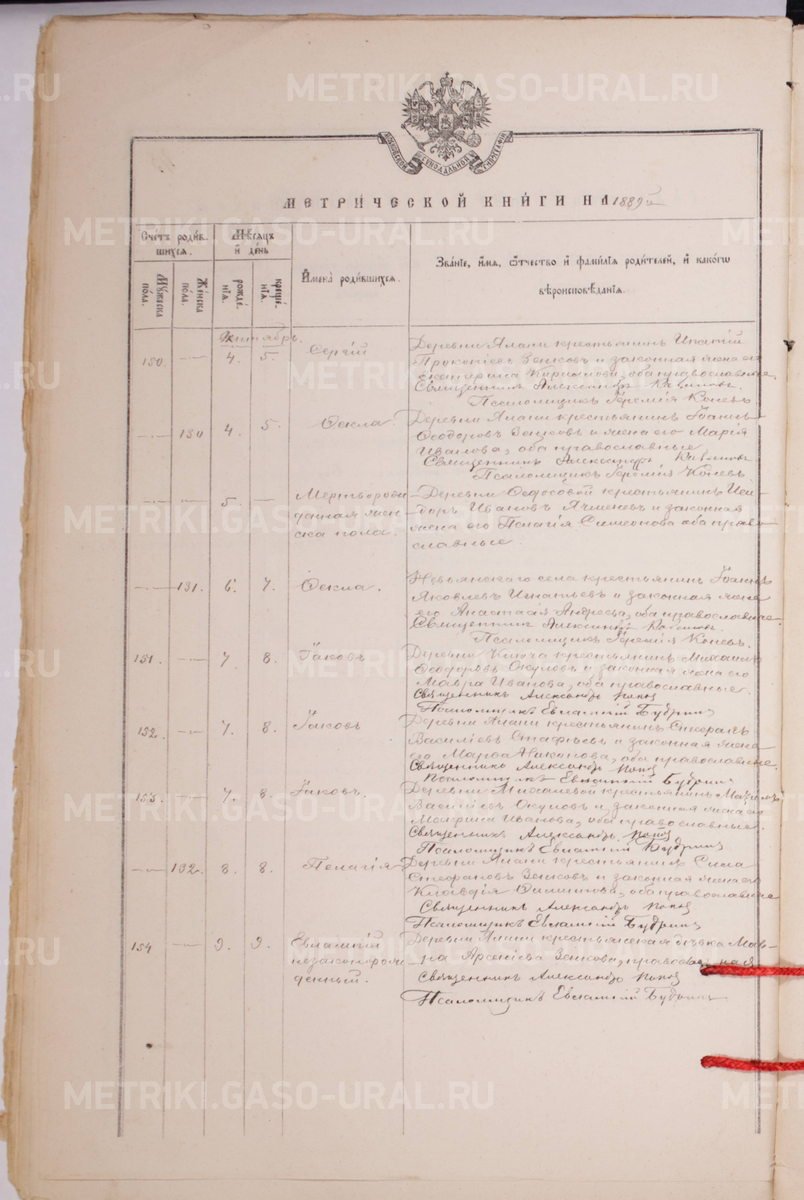 METRIKI.GASO-URAL.RU
МЕТРИ́ЧЕСКОЙ КНИ́ГИ НА 1889й
Сче́тъ роди́в-
шихся.
Мѣ́сяцъ
и҆ де́нь
Му́жеска
по́ла.
Же́нска
по́ла.
рожде́-
нїѧ.
креще́-
нїѧ.
И҆мена̀ роди́вшихся.
Зва́нїе, и҆́мѧ, ѻ҆́тчество и҆ фамı́лїѧ роди́телей, и҆ како́гѡ
вѣроисповѣ́данїѧ.
Октябрь.
130. — 4. 5. Сергій
Деревни Алапи крестьянинъ Ипатій
Прокопіевъ Зенковъ и законная жена его
Екатерина Кирилова, оба православные.
Священникъ Александръ
Псаломщикъ Іеремія Коневъ.
— 130 4. 5. Ѳекла.
Деревни Алапи крестьянинъ Іоаннъ
Ѳеодоровъ Зенковъ и жена его Марія
Иванова, оба православные
Священникъ Александръ
Псаломщикъ Іеремія Коневъ.
— — 5. — Мертворож
денная жен
ска пола.
Деревни Ѳедосовой крестьянинъ Иси-
доръ Ивановъ Ячменевъ и законная
жена его Пелагія Симеонова оба право-
славные.
— 131. 6. 7. Ѳекла.
Невьянскаго села крестьянинъ Іоаннъ
Яковлевъ Игнатьевъ и законная жена
его Анастасія Андреева, оба православные.
Священникъ Александръ
Псаломщикъ Іеремія Коневъ.
131. — 7. 8. Іаковъ
Деревни Ключа крестьянинъ Михаилъ
Ѳеодоровъ Окуловъ и законная жена его
Мавра Иванова, оба православные.
Священникъ Александръ Поповъ
Псаломщикъ Евлампій Будринъ
132. — 7. 8. Іаковъ
Деревни Алапи крестьянинъ Стефанъ
Василіевъ и законная жена
его Марѳа Никонова, оба православные.
Священникъ Александръ Поповъ
Псаломщикъ Евлампій Будринъ
133. — 7. 8. Іаковъ.
Деревни крестьянинъ Максимъ
Василіевъ Окуловъ и законная жена его
Иванова, оба православные.
Священникъ Александръ Поповъ
Псаломщикъ Евлампій Будринъ
— 132. 8. 8. Пелагія
Деревни Алапи крестьянинъ Сила
Стефановъ Зенковъ и законная жена его
Клавдія оба православные
Священникъ Александръ Поповъ
Псаломщикъ Евлампій Будринъ
134 — 9. 9. Евлампій
незаконорож
денный.
Деревни Алапи крестьянская дѣвка Мав-
ра Арсеніева Зенкова, православная
Священникъ Александръ Поповъ
Псаломщикъ Евлампій Будринъ